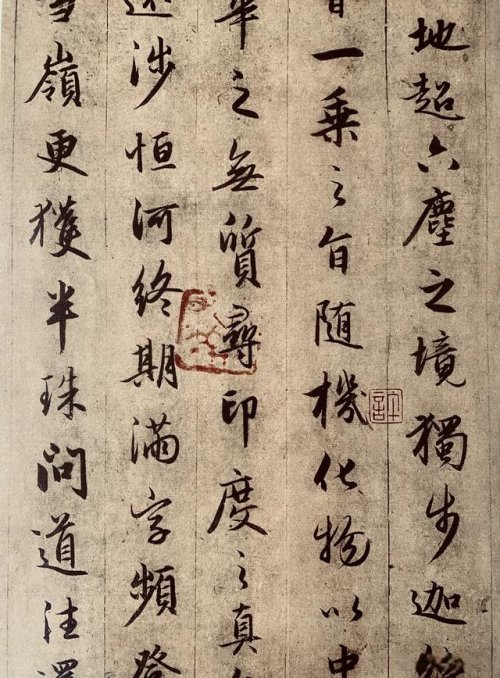 地超六塵之境獨步迦
一乘之旨随機化物以中
華之無質尋印度之真
遠涉恒河終期滿字頻登
雪嶺更獲半珠問道往還